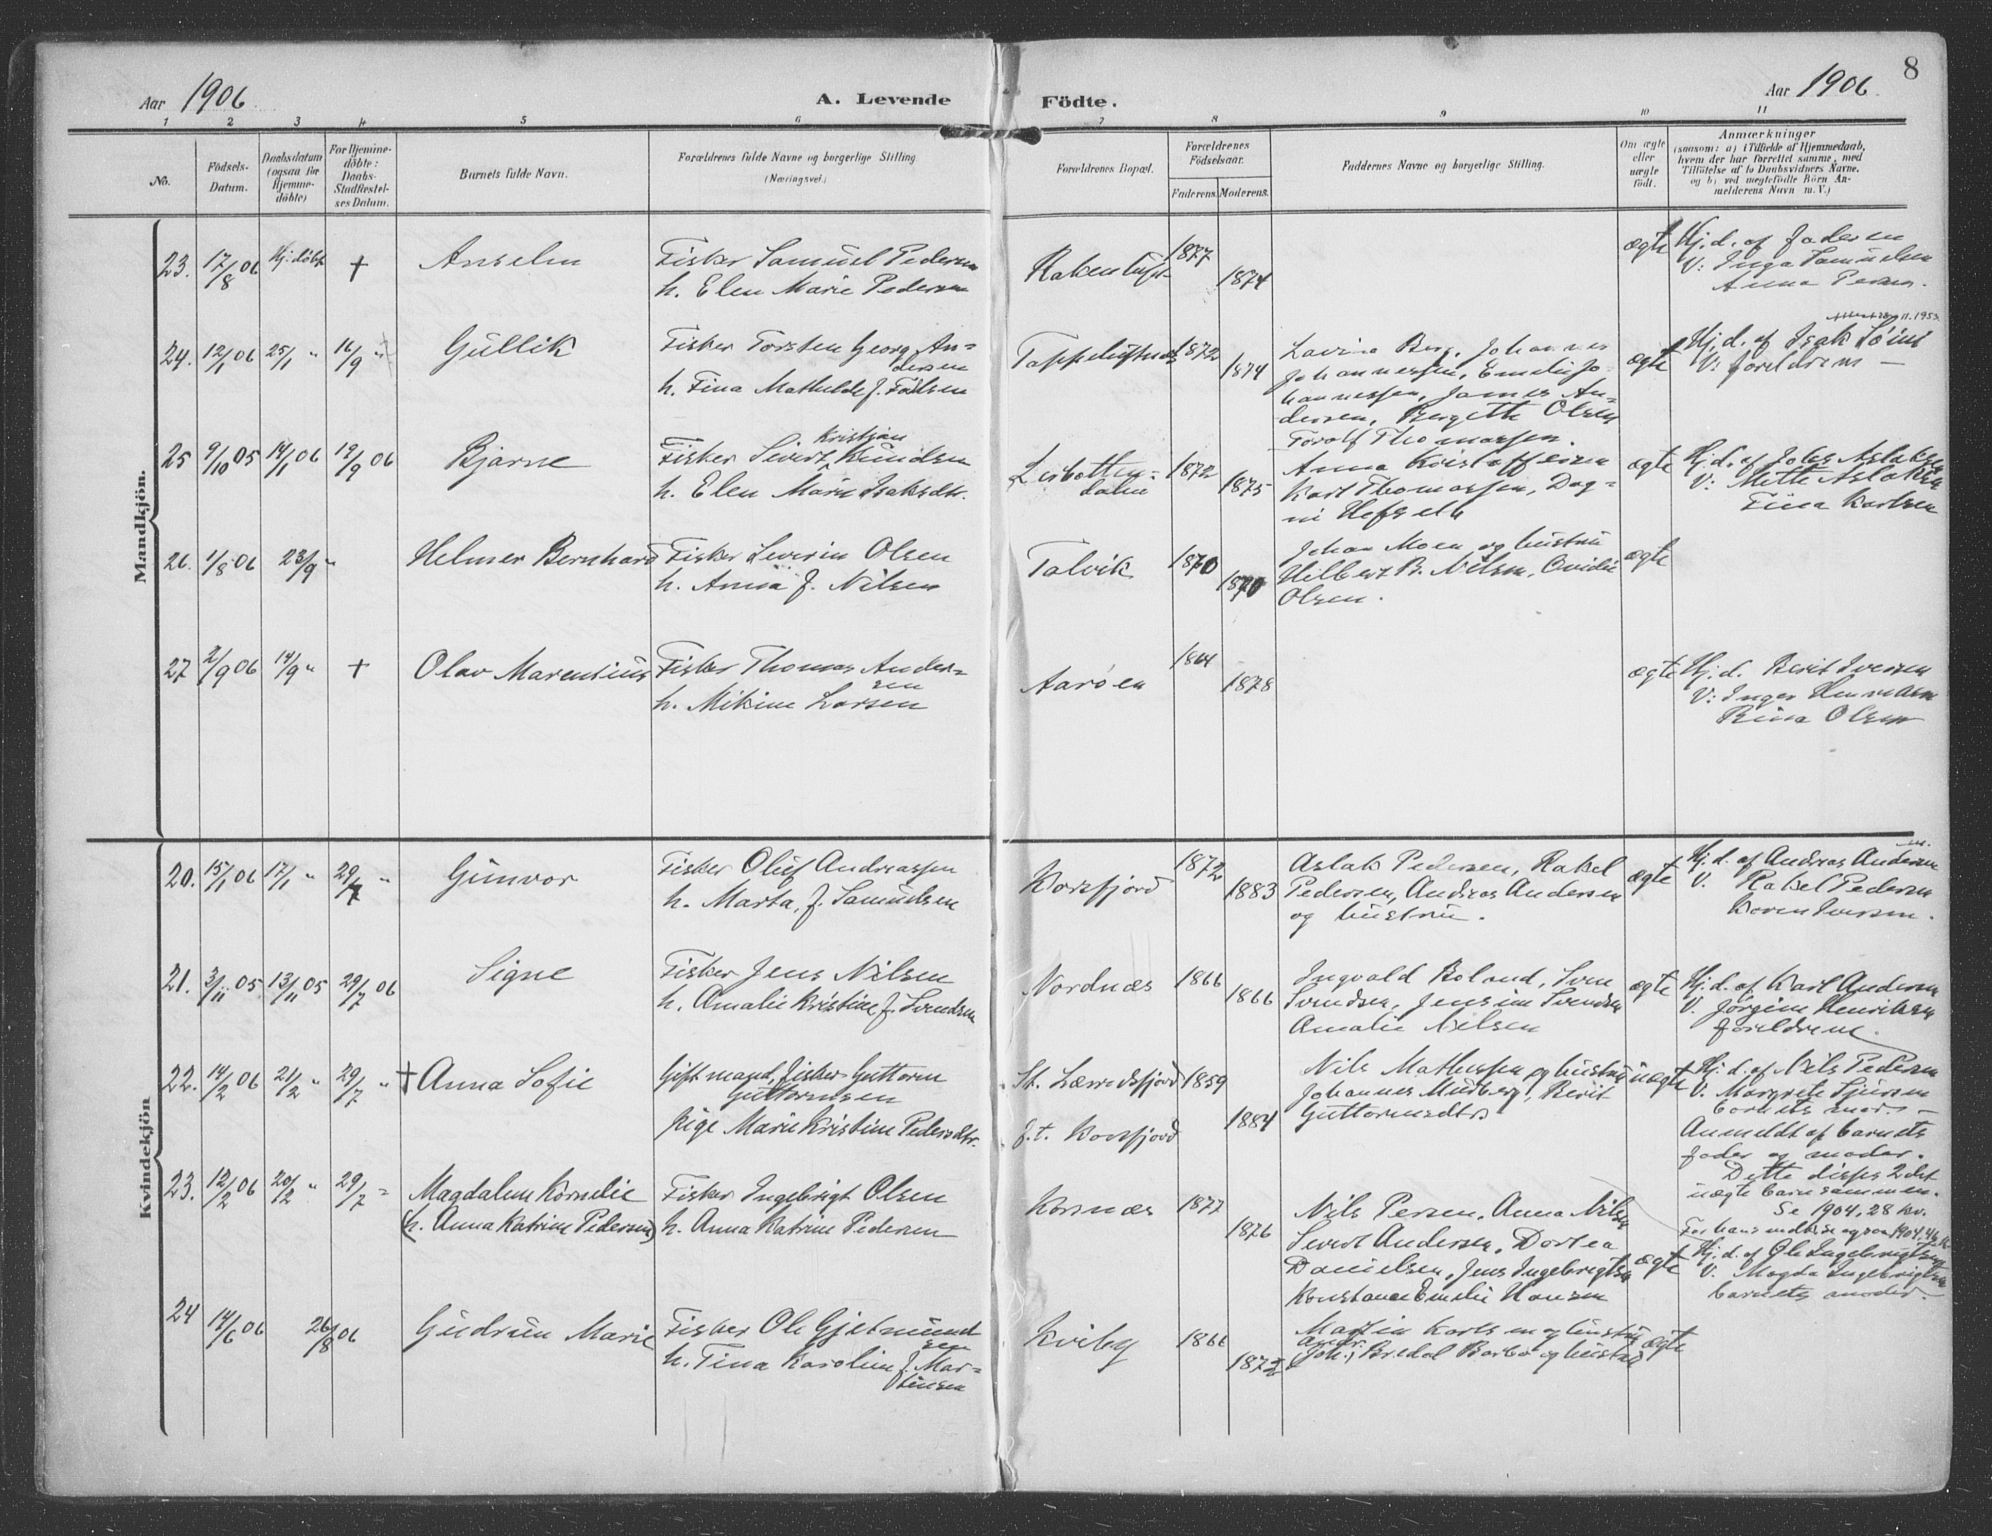 8
Aar 1906
A. Levende Födte.
Aar 1906
1 2 3 4 5 6 7 8 9 10 11
No.
Födsels-Datum.
Daabsdatum (ogsaa for Hjemme-döbte)
For Hjemme-döbte: Daabs-Stadfæstel-ses Datum.
Barnets fulde Navn.
Forældrenes fulde Navne og borgerlige Stilling.
(Næringsvei.)
Forældrenes Bopæl.
Forældrenes Födselsaar.
Faderens. Moderens.
Faddernes Navne og borgerlige Stilling.
Om ægte eller uægte födt.
Anmærkninger
(saasom: a) i Tilfælde af Hjemmedaab, hvem der har forrettet samme, med Tilföielse af to Daabsvidners Navne. og b) ved uægtefödte Börn An-melderens Navn m. V.)
Mandkjön.
23. 17/8 06 Hj. döbt + Anselm
Fisker Samuel Pedersen
h. Elen Marie Pedersen
1877 1874 ægte
Hj. d. af faderen
V: Inga Samuelsen
Anna
24. 12/1 06 25/1 " 16/9 " Gullik
Fisker Torsten Georg An-
dersen
h. Fina Mathilde f.
1872 1874
Lavina Berg, Johannes
Johannessen, Emilie Jo-
hannessen, James An-
dersen, Bergitte Olsen
Torolf Thomassen.
ægte
Hj. d. af Isak
V: foreldrene
25 9/10 05 14/1 06 19/9 06 Bjarne
Kristjan
Fisker Sivert Knudsen
h. Elen Marie Isaksdtr.
1872 1875
Anna Kristoffersen
Karl Thomassen, Dag-
ni
ægte
Hj. d. af Johs Aslaksen
V: Mette Aslaksen
Fina Karlsen
26. 1/8 06 23/9 " Helmer Bernhard
Fisker Severin Olsen
h. Anna f. Nilsen
Talvik 1870 1870
Johan Moen og hustru
Hilbert B. Nilsen, Ovidie
Olsen.
ægte
27 2/9 06 14/9 " + Olav Marensius
Fisker Thomas Ander-
sen
h. Mikine Larsen
Aarøen 1878 ægte
Hj. d. Berit Iversen
V: Inger
Rina Olsen
Kvindekjön
20. 15/1 06 17/1 " 29/7 " Gunvor
Fisker Oluf Andreassen
h. Marta, f. Samuelsen
Korsfjord 1872 1883
Aslak Pedersen, Rakel
Pedersen, Andreas Andersen
og hustru.
ægte
Hj. d. af Andreas Andersen
V. Rakel Pedersen
Karen Iversen.
21. 3/11 05 13/11 05 29/7 06 Signe
Fisker Jens Nilsen
h. Amalie Kristine f. Svendsen
Nordnæs 1866 1866
Ingvald Boland, Sven
Svendsen, Jensine Svendsen
Amalie Nilsen
ægte
Hj. d. af Karl Andersen
V. Jørgine Henriksen
foreldrene.
22. 14/2 06 21/2 " 29/7 " + Anna Sofie
Gift mand, fisker Guttorm
Guttormsen
pige Marie Kristine Pedersdtr.
St. Lærredsfjord 1859
f. t. Korsfjord 1884
Nils Mathessen og hustru
Johannes Mudberg, Berit
Guttormsdtr
uægte
Hj. d. af Nils Pedersen
V. Margrete
barnets mor
Anmeldt af barnets
fader og moder.
Dette disses 2det
uægte barn sammen.
Se 1904, 28 kv.
23. 12/2 06 20/2 " 29/7 " Magdalene Kornelie
(h. Anna Katrine Pedersen)
Fisker Ingebrigt Olsen
h. Anna Katrine Pedersen
Korsnæs 1877 1876
Nils Persen, Anna Nilsen
Sivert Andersen, Dortea
Danielsen, Jens Ingebrigtsen
Konstanse Emelie Hansen
ægte
Hj. d. af Ole Ingebrigtsen
V. Magda Ingebrigtsen
barnets moder.
24 14/6 06 26/8 06 Gudrun Marie
Fisker Ole Gjetmund
sen
h. Fina Karoline f. Mar-
tinsen
Kviby 1866 1872
Martin Karlsen og hustru
Johs Bredal Barbo og hustru
ægte